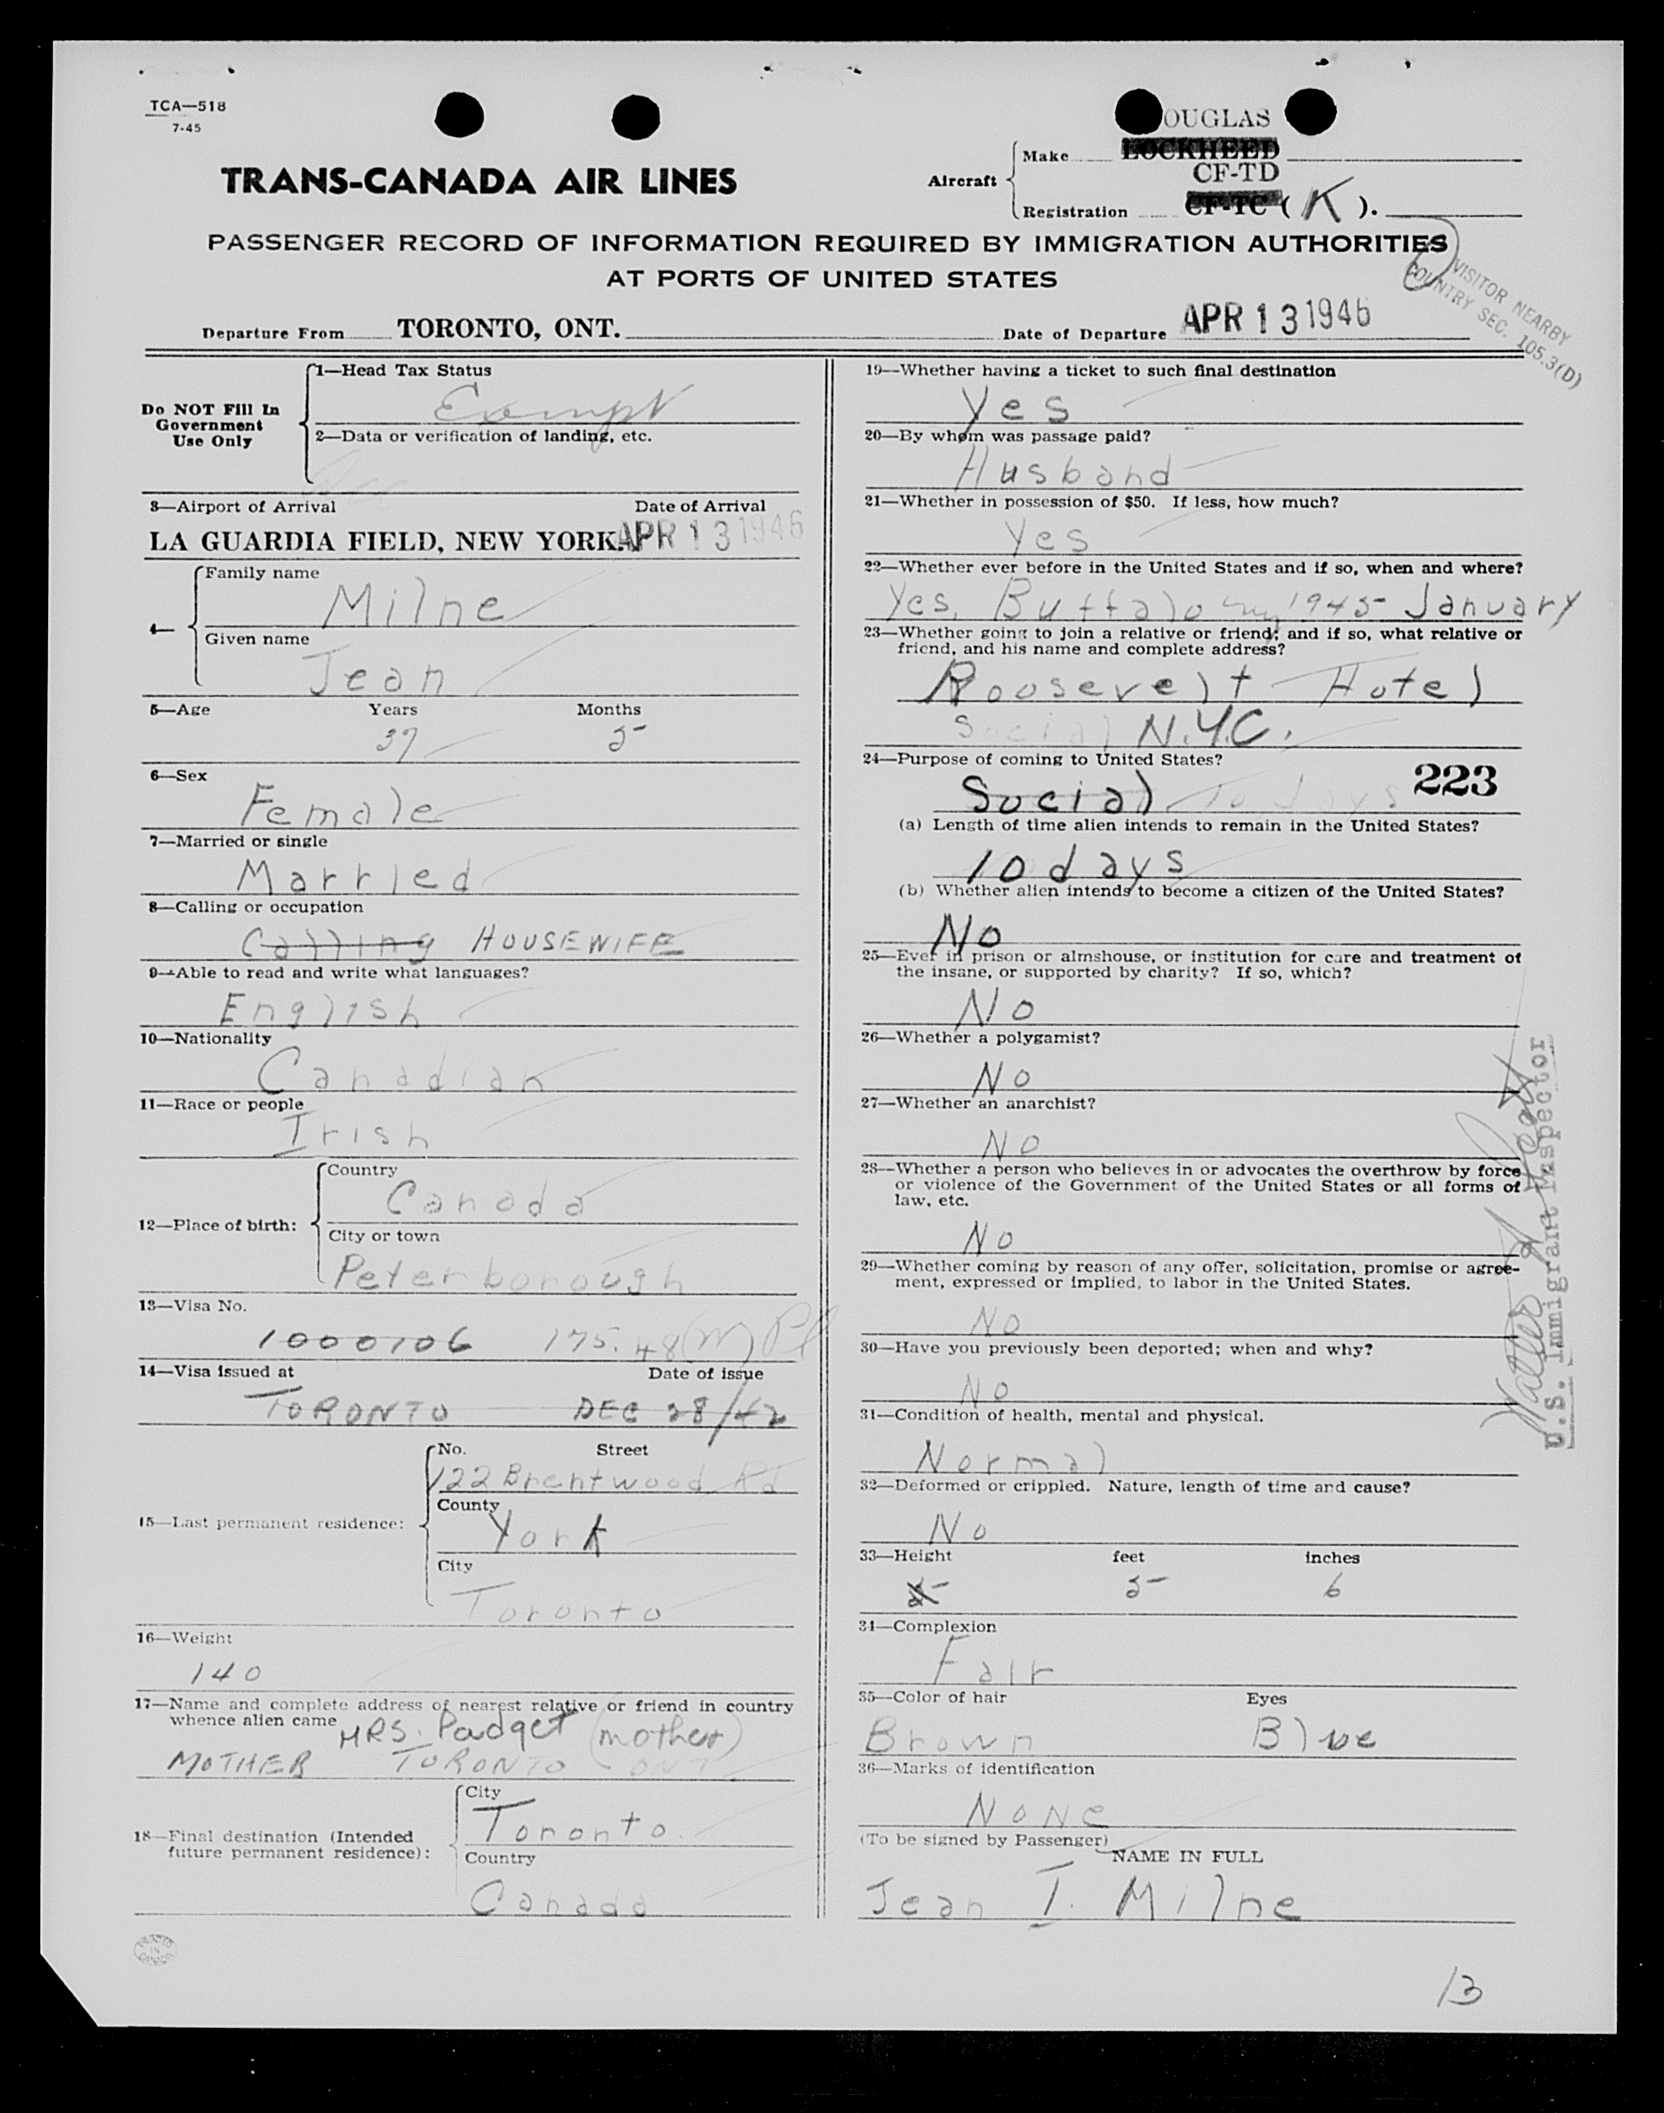 TCA—518
7-45
OUGLAS
Make LOCKHEED
TRANS-CANADA AIR LINES
Aircraft
CF-TD
Registration CF-TC ( K ).
PASSENGER RECORD OF INFORMATION REQUIRED BY IMMIGRATION AUTHORITIES
AT PORTS OF UNITED STATES
VISITOR NEARBY
COUNTRY SEC. 105.3(D)
Departure From TORONTO, ONT.
Date of Departure APR 13 1946
Do NOT Fill In
Government
Use Only
1—Head Tax Status
Exempt
2—Data or verification of landing, etc.
3—Airport of Arrival Date of Arrival
LA GUARDIA FIELD, NEW YORK. APR 13 1946
4—
Family name
Milne
Given name
Jean
5—Age Years Months
37 5
6—Sex
Female
7—Married or single
Married
8—Calling or occupation
Calling HOUSEWIFE
9—Able to read and write what languages?
English
10—Nationality
Canadian
11—Race or people
Irish
12—Place of birth:
Country
Canada
City or town
Peterborough
13—Visa No.
1000106 175.48(M)
14—Visa issued at Date of issue
TORONTO DEC 28/42
15—Last permanent residence:
No. Street
122 Brentwood Rd
County
York
City
Toronto
16—Weight
140
17—Name and complete address of nearest relative or friend in country
whence alien came
MRS. Padget (mother)
MOTHER TORONTO ONT
18—Final destination (Intended
future permanent residence):
City
Toronto.
Country
Canada
PRINTED
IN
CANADA
19—Whether having a ticket to such final destination
Yes
20—By whom was passage paid?
Husband
21—Whether in possession of $50. If less, how much?
Yes
22—Whether ever before in the United States and if so, when and where?
Yes, Buffalo 1945 January
23—Whether going to join a relative or friend; and if so, what relative or
friend, and his name and complete address?
Roosevelt Hotel
Social N.Y.C.
24—Purpose of coming to United States?
Social 10 days 223
(a) Length of time alien intends to remain in the United States?
10 days
(b) Whether alien intends to become a citizen of the United States?
No
25—Ever in prison or almshouse, or institution for care and treatment of
the insane, or supported by charity? If so, which?
No
26—Whether a polygamist?
No
27—Whether an anarchist?
No
28—Whether a person who believes in or advocates the overthrow by force
or violence of the Government of the United States or all forms of
law, etc.
No
29—Whether coming by reason of any offer, solicitation, promise or agree-
ment, expressed or implied, to labor in the United States.
No
30—Have you previously been deported; when and why?
No
31—Condition of health, mental and physical.
Normal
32—Deformed or crippled. Nature, length of time and cause?
No
33—Height feet inches
5 5 6
34—Complexion
Fair
35—Color of hair Eyes
Brown Blue
36—Marks of identification
NONE
(To be signed by Passenger)
NAME IN FULL
Jean I. Milne
U.S. Immigrant Inspector
13